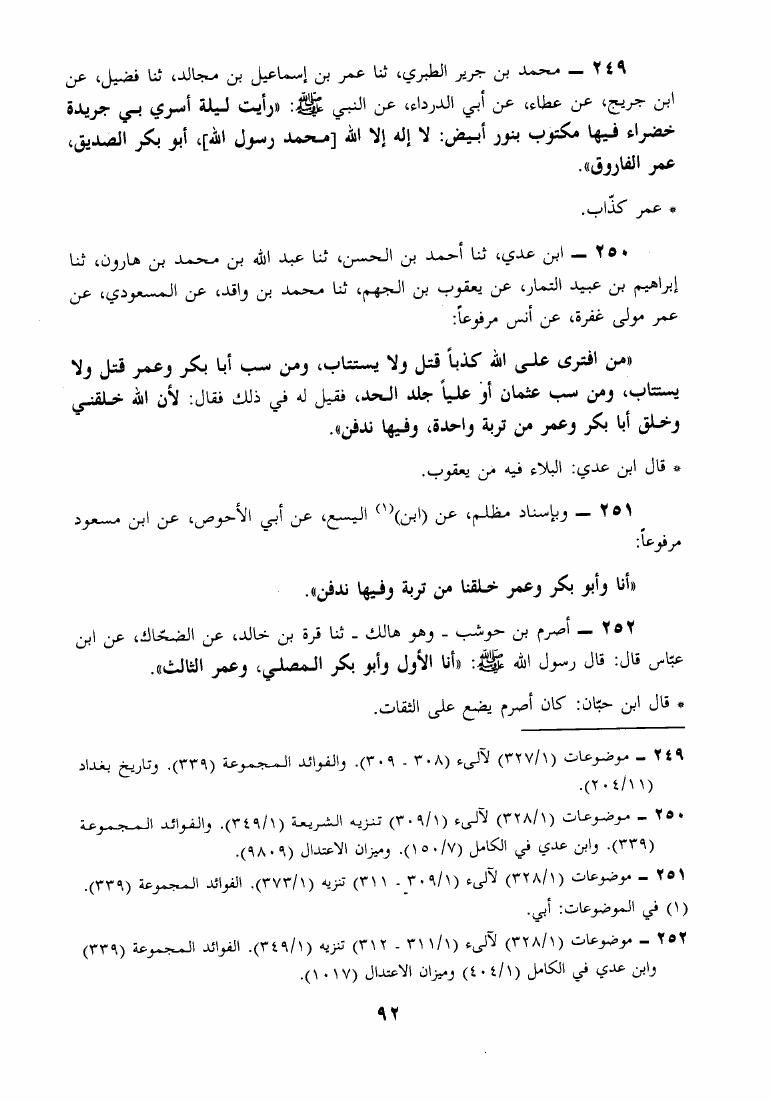 ٢٤٩ ــ محمد بن جرير الطبري، ثنا عمر بن إسماعيل بن مجالد، ثنا فضيل، عن
ابن جريج، عن عطاء، عن أبي الدرداء، عن النبي ﷺ: «رأيت ليلة أسري بي جريدة
خضراء فيها مكتوب بنور أبيض: لا إله إلا الله [محمد رسول الله]، أبو بكر الصديق،
عمر الفاروق».
* عمر كذّاب.
٢٥٠ ــ ابن عدي، ثنا أحمد بن الحسن، ثنا عبد الله بن محمد بن هارون، ثنا
إبراهيم بن عبيد التمار، عن يعقوب بن الجهم، ثنا محمد بن واقد، عن المسعودي، عن
عمر مولى غفرة، عن أنس مرفوعاً:
«من افترى على الله كذباً قتل ولا يستتاب، ومن سب أبا بكر وعمر قتل ولا
يستتاب، ومن سب عثمان أو علياً جلد الحد، فقيل له في ذلك فقال: لأن الله خلقني
وخلق أبا بكر وعمر من تربة واحدة، وفيها ندفن».
* قال ابن عدي: البلاء فيه من يعقوب.
٢٥١ ــ وبإسناد مظلم، عن (ابن)(١) اليسع، عن أبي الأحوص، عن ابن مسعود
مرفوعاً:
«أنا وأبو بكر وعمر خلقنا من تربة وفيها ندفن».
٢٥٢ ــ أصرم بن حوشب - وهو هالك - ثنا قرة بن خالد، عن الضحّاك، عن ابن
عبّاس قال: قال رسول الله ﷺ: «أنا الأول وأبو بكر المصلي، وعمر الثالث».
* قال ابن حبّان: كان أصرم يضع على الثقات.
٢٤٩ ــ موضوعات (٣٢٧/١) لآلىء (٣٠٨ - ٣٠٩). والفوائد المجموعة (٣٣٩). وتاريخ بغداد
(٢٠٤/١١).
٢٥٠ ــ موضوعات (٣٢٨/١) لآلىء (٣٠٩/١) تنزيه الشريعة (٣٤٩/١). والفوائد المجموعة
(٣٣٩). وابن عدي في الكامل (١٥٠/٧). وميزان الاعتدال (٩٨٠٩).
٢٥١ ــ موضوعات (٣٢٨/١) لآلىء (٣٠٩/١ - ٣١١) تنزيه (٣٧٣/١). الفوائد المجموعة (٣٣٩).
(١) في الموضوعات: أبي.
٢٥٢ ــ موضوعات (٣٢٨/١) لآلىء (٣١١/١ - ٣١٢) تنزيه (٣٤٩/١). الفوائد المجموعة (٣٣٩)
وابن عدي في الكامل (٤٠٤/١) وميزان الاعتدال (١٠١٧).
٩٢